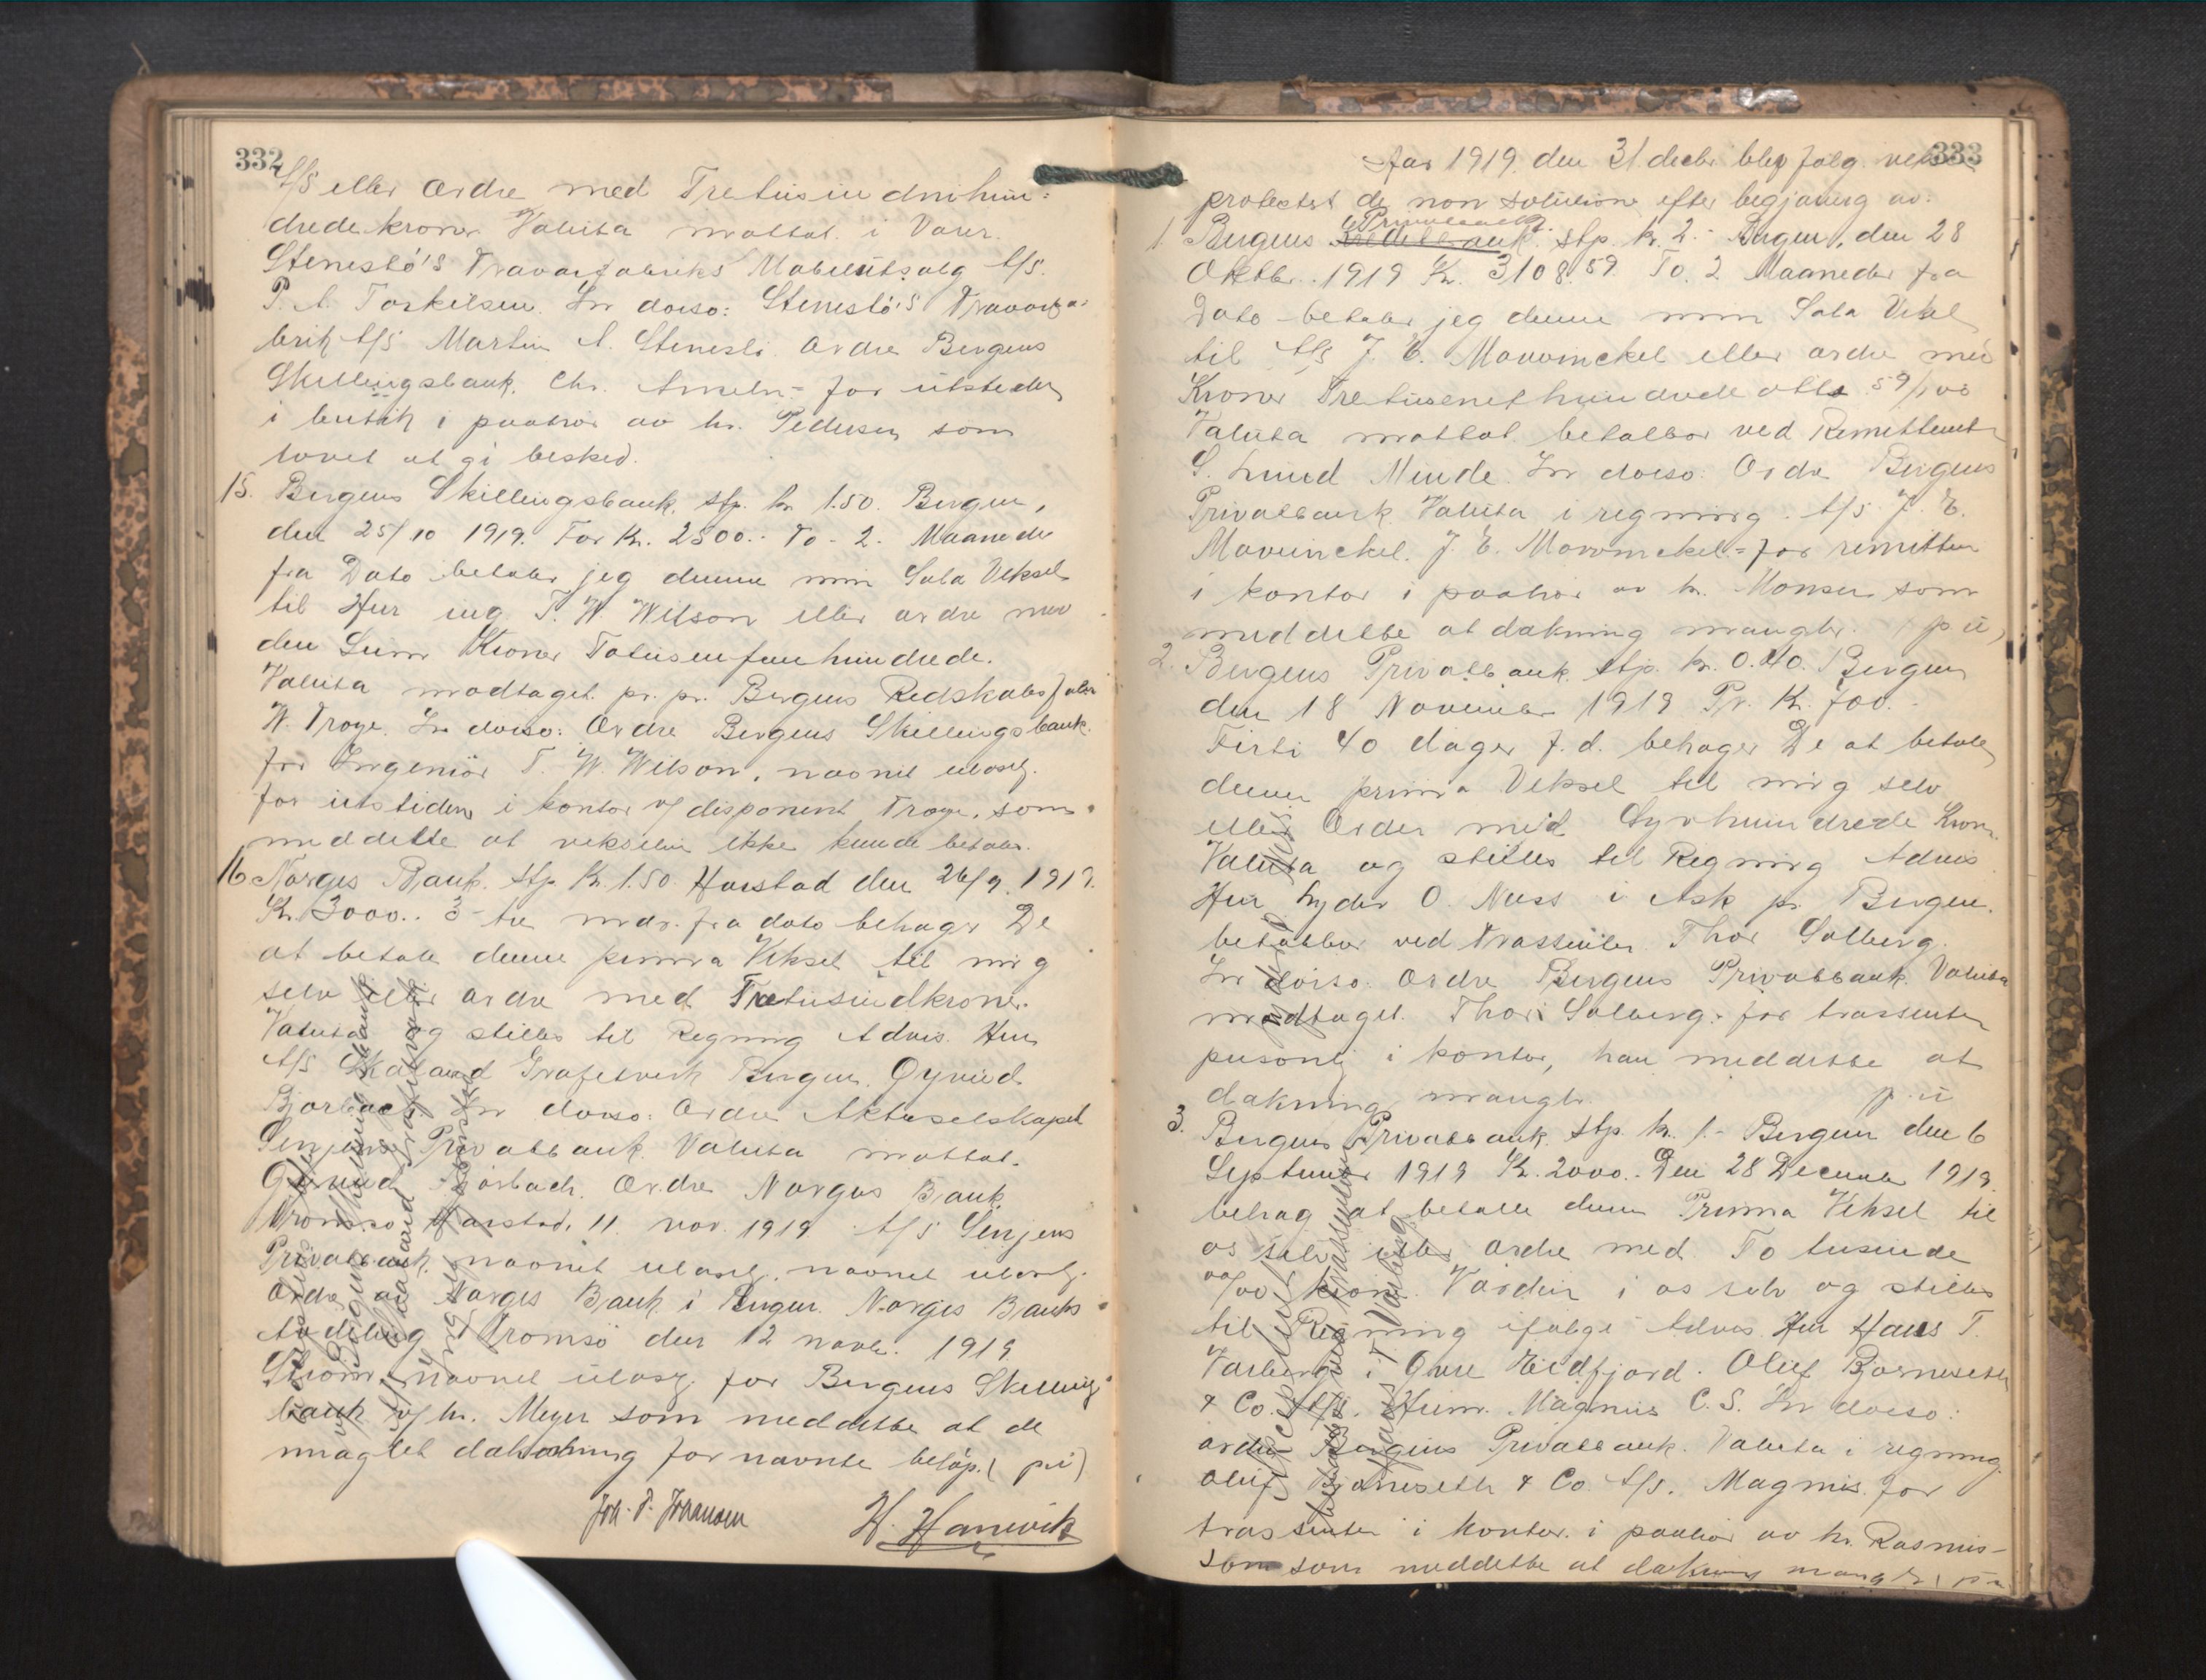 332
A/S eller Ordre med Tretusindnihun=
drede kroner Valuta mottat i Varer.
Steneslö's Travarefabriks Møbelutsalg A/S.
P. A. Torkilsen. In dorso: Steneslö's Travarefa=
brik A/S Martin A. Stenesli. Ordre Bergens
Skillingsbank. Chr. = for utsteder
i butik i paahör av hr. Pedersen som
lovet at gi besked.
15. Bergens Skillingsbank. stp. kr 1.50. Bergen,
den 25/10 1919. For Kr. 2500.- To - 2. Maaneder
fra Dato betaler jeg denne min Sola Veksel
til Herr ing T. W. Wilson eller ordre med
den Sum Kroner Totusenfemhundrede.
Valuta modtaget. pr. pr. Bergens Redskabsfabr
W. Troye. In dorso: Ordre Bergens Skillingsbank.
for Ingeniör T. W. Wilson, navnet ulæselig.
for utstederen i kontor v/ disponent Troye, som
meddelte at vekselen ikke kunde betales.
16 Norges Bank. stp. Kr. 1.50. Harstad den 26/9. 1919.
Kr. 3000.. 3 - tre mdr. fra dato behager De
at betale denne prima Veksel til mig
selv eller ordre med Tretusindkroner.
Valuta og stilles til Regning Advis. Herr
A/S Skaland Grafitverk Bergen. Oyvind
Bjorbæck. In dorso: Ordre Aktieselskapet
Senjens Privatbank. Valuta mottat.
Øyvind Bjorbæck. Ordre Norges Bank
Tromsö Harstad, 11. nov. 1919 A/S Senjens
Privatbank. navnet ulæselig. navnet ulæselig.
Ordre av Norges Bank i Bergen. Norges Banks
Avdeling i Tromsö den 12 novbr. 1919
Ström. navnet ulæsg. for Bergens Skillings
bank v/ hr. Meyer som meddelte at de
manglet dækning for nævnte belöp. (p.ü)
Joh. P. Johansen H. Hanevik
333
Aar 1919. den 31. decbr blev følg. veksler
protestert de non solutione efter begjæring av:
1. Bergens Kreditbank Privatbank. stp. kr. 2.- Bergen, den 28
Oktbr. 1919 Kr. 3108.59. To. 2 Maaneder fra
Dato betaler jeg denne min Sola Veksel
til A/S J. E. Mowinckel eller ordre med
Kroner Tretusenethundrede otte 59/100
Valuta mottat. betalbar ved Remittenten
S. Lund Minde. In dorso: Ordre Bergens
Privatbank Valuta i regning. A/S. J. E.
Mowinckel. J. E. Mowinckel. = for remittent
i kontor i paahör av hr. Monsen som
meddelte at dækning mangler. (p ü)
2. Bergens Privatbank. stp. kr. 0.40. Bergen
den 18 November 1919 Pr. Kr. 700.-
Firti 40 dager f. d. behager De at betale
denne prima Veksel til mig selv
eller Order med Syvhundrede Kroner
Valuta og stilles til Regning Advis
Herr Lyder O. Ness i Ask pr. Bergen.
betalbar ved Trassenten Thor Solberg.
In dorso. Ordre Bergens Privatbank. Valuta
modtaget. Thor Solberg. = for trassenten
personlig i kontor, han meddelte at
dækning mangler. p. ü
3. Bergens Privatbank. stp. kr. 1.- Bergen den 6
September 1919 Kr. 2000.- Den 28 December 1919.
behag at betale denne Prima Veksel til
os selv eller ordre med To tusinde
00/00 kroner. Værdien i os selv og stilles
til Regning ifölge Advis Herr Hans T.
Varberg i Øvre Eidfjord. Oluf Bjørneseth
& Co. A/S. Heinr. Magnus C. S. In dorso:
order Bergens Privatbank. Valuta i regning
Oluf Bjørneseth & Co. A/S. Magnus. for
trassenten i kontor. i paahör av hr. Rasmus-
sen som meddelte at dækning mangler (p ü